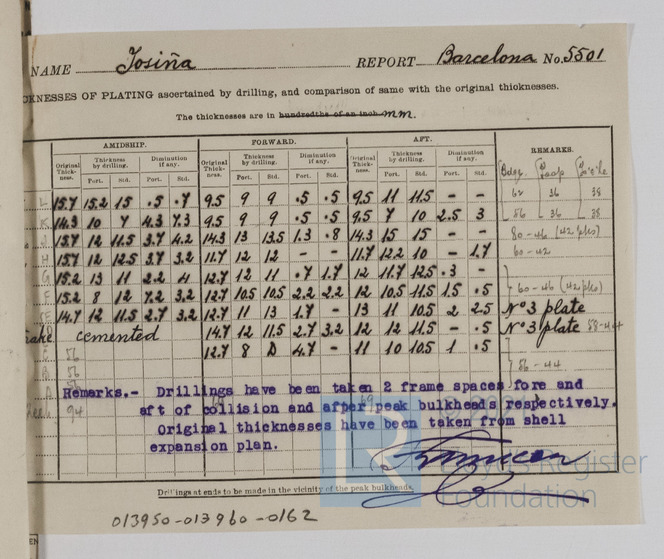 NAME Josiña REPORT Barcelona No. 5501
CKNESSES OF PLATING ascertained by drilling, and comparison of same with the original thicknesses.
The thicknesses are in hundredths of an inch mm.
AMIDSHIP. FORWARD. AFT. REMARKS.
Original Thickness. Thickness by drilling. Diminution if any. Original Thickness. Thickness by drilling. Diminution if any. Original Thickness. Thickness by drilling. Diminution if any.
Port. Std. Port. Std. Port. Std. Port. Std. Port. Std. Port. Std. Bdge. Poop
L 15.7 15.2 15 .5 .7 9.5 9 9 .5 .5 9.5 11 11.5 - - 62 36 38
K 14.3 10 7 4.3 7.3 9.5 9 9 .5 .5 9.5 7 10 2.5 3 56 36 38
J 15.7 12 11.5 3.7 4.2 14.3 13 13.5 1.3 .8 14.3 15 15 - - 80-46
H 15.7 12 12.5 3.7 3.2 11.7 12 12 - - 11.7 12.2 10 - 1.7 60-42
G 15.2 13 11 2.2 4 12.7 12 11 .7 1.7 12 11.7 12.5 .3 -
F 15.2 8 12 7.2 3.2 12.7 10.5 10.5 2.2 2.2 12 10.5 11.5 1.5 .5 60-46
E 14.7 12 11.5 2.7 3.2 12.7 11 13 1.7 - 13 11 10.5 2 2.5 No 3 plate
rake cemented 14.7 12 11.5 2.7 3.2 12 12 11.5 - .5 No 3 plate 58-44
56 12.7 8 D 4.7 - 11 10 10.5 1 .5
B 56 56-44
A 56
94
Remarks.- Drillings have been taken 2 frame spaces fore and
aft of collision and after peak bulkheads respectively.
Original thicknesses have been taken from shell
expansion plan.
Lloyd's Register
Foundation
Drillings at ends to be made in the vicinity of the peak bulkheads.
013950-013960-0162